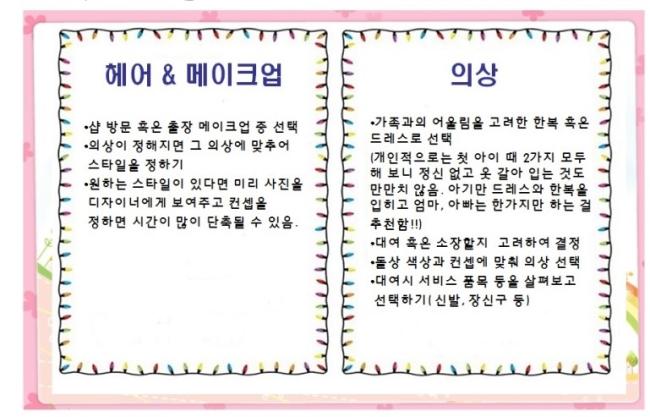 헤어 & 메이크업
•샵 방문 혹은 출장 메이크업 중 선택
•의상이 정해지면 그 의상에 맞추어
스타일을 정하기
•원하는 스타일이 있다면 미리 사진을
디자이너에게 보여주고 컨셉을
정하면 시간이 많이 단축될 수 있음.
의상
•가족과의 어울림을 고려한 한복 혹은
드레스로 선택
(개인적으로는 첫 아이 때 2가지 모두
해 보니 정신 없고 옷 갈아 입는 것도
만만치 않음. 아기만 드레스와 한복을
입히고 엄마, 아빠는 한가지만 하는 걸
추천함!!)
•대여 혹은 소장할지 고려하여 결정
•돌상 색상과 컨셉에 맞춰 의상 선택
•대여시 서비스 품목 등을 살펴보고
선택하기( 신발, 장신구 등)